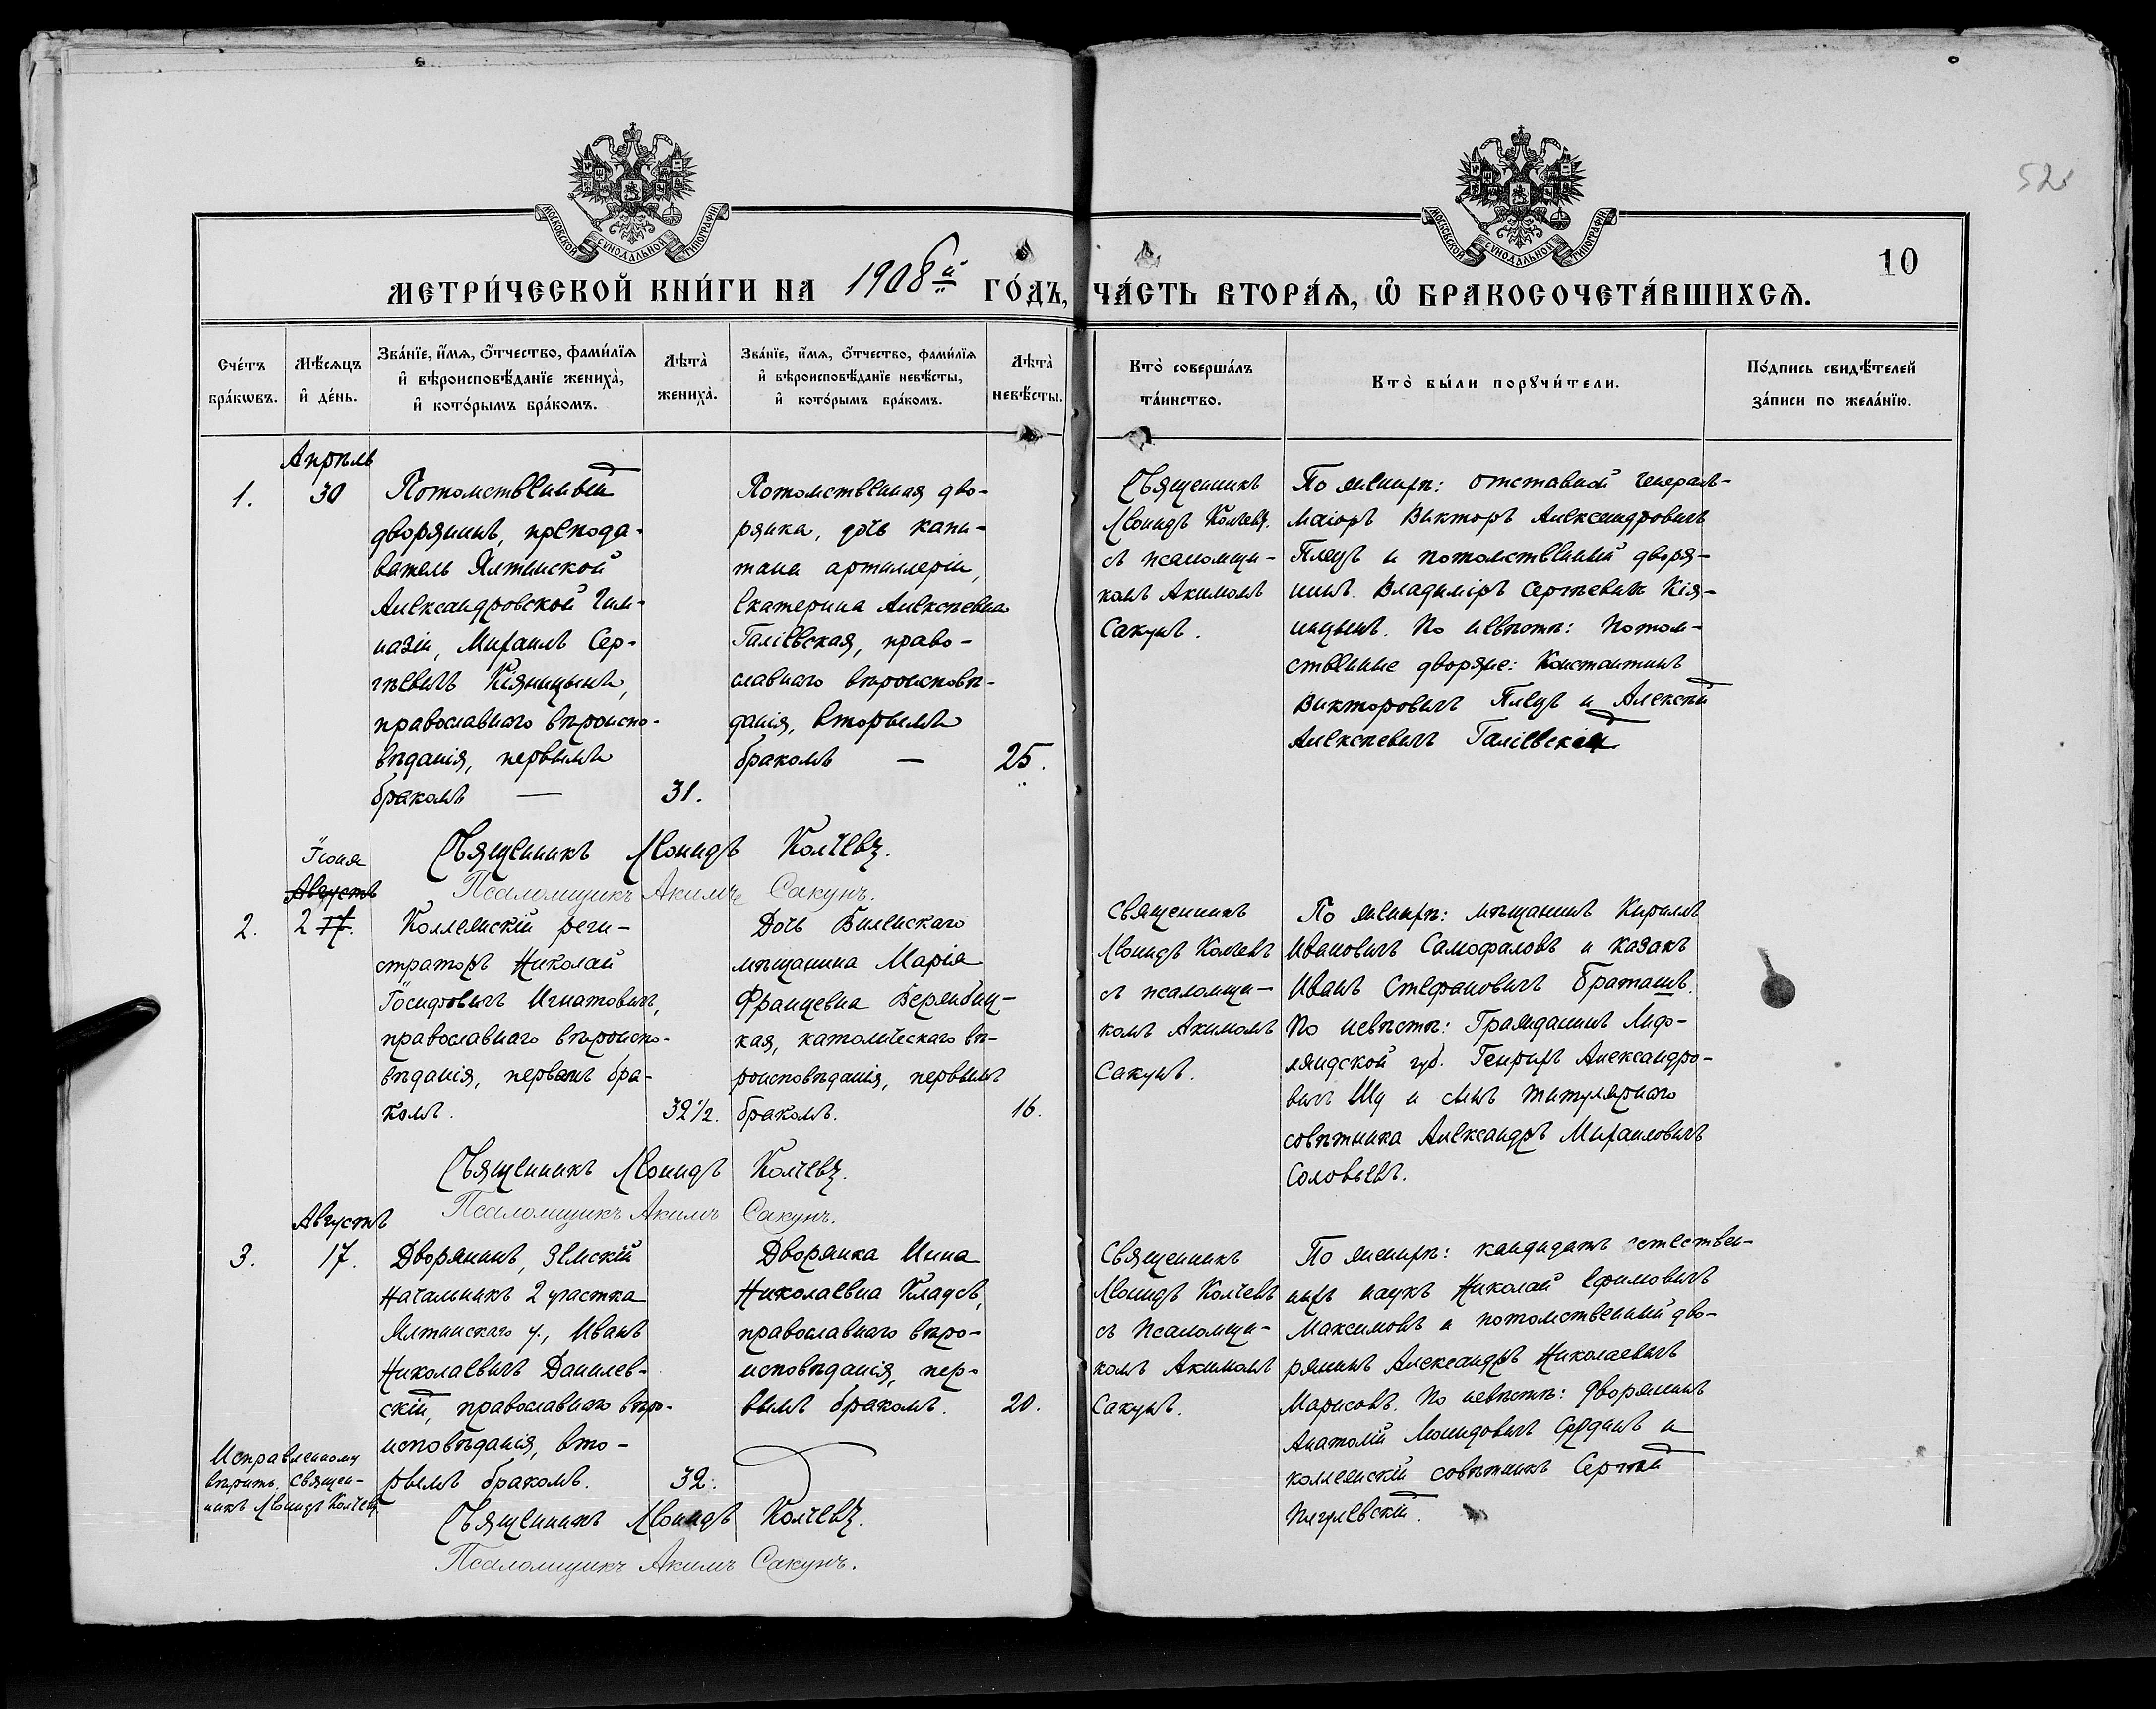 52
МОСКОВСКОЙ СѴНОДАЛЬНОЙ ТИПОГРАФІИ
МОСКОВСКОЙ СѴНОДАЛЬНОЙ ТИПОГРАФІИ
10
МЕТРИ́ЧЕСКОЙ КНИ́ГИ НА 1908й ГО́ДЪ, ЧА́СТЬ ВТОРА́Ѧ, Ѡ҆ БРАКОСОЧЕТА́ВШИХСѦ.
Сче́тъ бра́кѡвъ.
Мѣ́сѧцъ и҆ де́нь.
Зва́нїе, и҆́мѧ, ѻ҆́тчество, фами́лїѧ
и҆ вѣроисповѣ́данїе жениха̀,
и҆ кото́рымъ бра́комъ.
Лѣта̀ жениха̀.
Зва́нїе, и҆́мѧ, ѻ҆́тчество, фами́лїѧ
и҆ вѣроисповѣ́данїе невѣ́сты,
и҆ кото́рымъ бра́комъ.
Лѣта̀ невѣ́сты.
Кто̀ соверша́лъ та́инство.
Кто̀ бы́ли порꙋчи́тели.
По́дпись свидѣ́телей
за́писи по жела́нїю.
Апрѣль
1.
30
Потомственный
дворянинъ, препода-
ватель Ялтинской
Александровской Гим-
назіи, Михаилъ Сер-
гѣевичъ Кіяницынъ,
православнаго вѣроиспо-
вѣданія, первымъ
бракомъ —
31.
Потомственная дво-
рянка, дочь капи-
тана артиллеріи,
Екатерина Алексѣевна
Галіевская, право-
славнаго вѣроисповѣ-
данія, вторымъ
бракомъ —
25.
Священникъ
Леонидъ Колчевъ
съ псаломщи-
комъ Акимомъ
Сакунъ.
По женихѣ: отставной Генералъ-
маіоръ Викторъ Александровичъ
Плецъ и потомственный дворя-
нинъ Владиміръ Сергѣевичъ Кія-
ницынъ. По невѣстѣ: Потом-
ственные дворяне: Константинъ
Викторовичъ Плецъ и Алексѣй
Алексѣевичъ Галіевскій
Священникъ Леонидъ Колчевъ.
Псаломщикъ Акимъ Сакунъ.
Іюня
Августъ
2.
2 17.
Коллежскій реги-
страторъ Николай
Іосифовичъ Игнатовичъ,
православнаго вѣроиспо-
вѣданія, первымъ бра-
комъ.
32 1/2.
Дочь Виленскаго
мѣщанина Марія
Францевна
кая, католическаго вѣ-
роисповѣданія, первымъ
бракомъ.
16.
Священникъ
Леонидъ Колчевъ
съ псаломщи-
комъ Акимомъ
Сакунъ.
По женихѣ: мѣщанинъ Кириллъ
Ивановичъ Самофаловъ и казакъ
Иванъ Стефановичъ Браташъ.
По невѣстѣ: Гражданинъ Лиф-
ляндской губ. Генрихъ Александро-
вичъ и сынъ титулярнаго
совѣтника Александръ Михаиловичъ
Соловьевъ.
Священникъ Леонидъ Колчевъ.
Псаломщикъ Акимъ Сакунъ.
Августъ
3.
17.
Дворянинъ, Земскій
Начальникъ 2 участка
Ялтинскаго у., Иванъ
Николаевичъ Данилев-
скій, православнаго вѣро-
исповѣданія, вто-
рымъ бракомъ.
32.
Дворянка Инна
Николаевна Кладо,
православнаго вѣро-
исповѣданія, пер-
вымъ бракомъ.
20.
Священникъ
Леонидъ Колчевъ
съ Псаломщи-
комъ Акимомъ
Сакунъ.
По женихѣ: кандидатъ естествен-
ныхъ наукъ Николай Ефимовичъ
Максимовъ и потомственный дво-
рянинъ Александръ Николаевичъ
Марисовъ. По невѣстѣ: Дворянинъ
Анатолій Леонидовичъ Срединъ и
коллежскій совѣтникъ Сергѣй
Пигулевскій.
Исправленному
вѣрить. Священ-
никъ Леонидъ Колчевъ
Священникъ Леонидъ Колчевъ.
Псаломщикъ Акимъ Сакунъ.